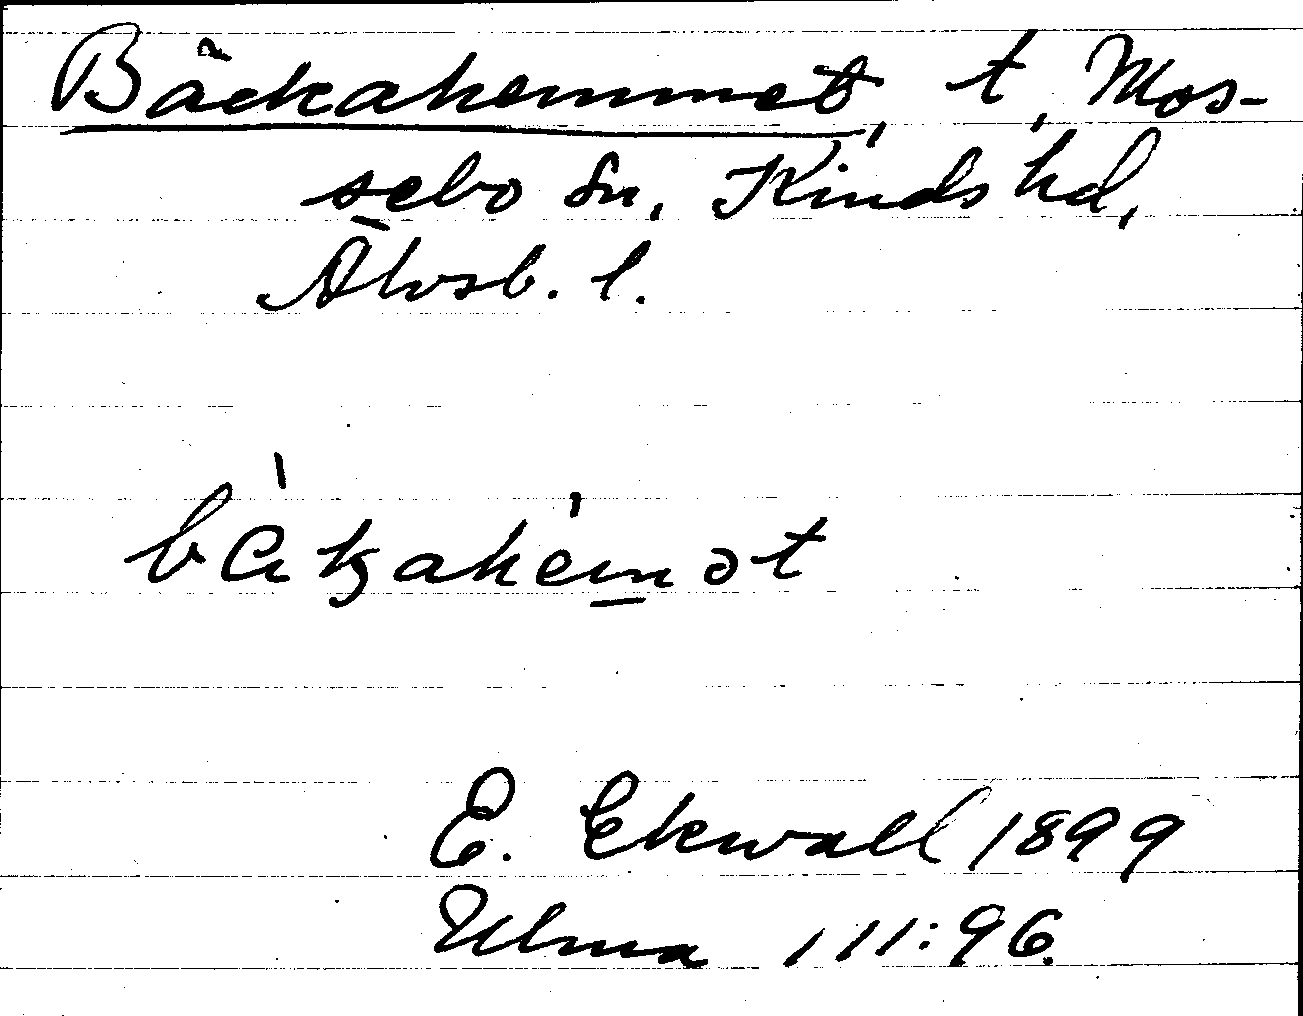 Bäckahemmet, t, Mos-
sebo sn, Kinds hd,
Älvsb. l.
bàkahémət
E. Ekwall 1899
Ulma 111:96.